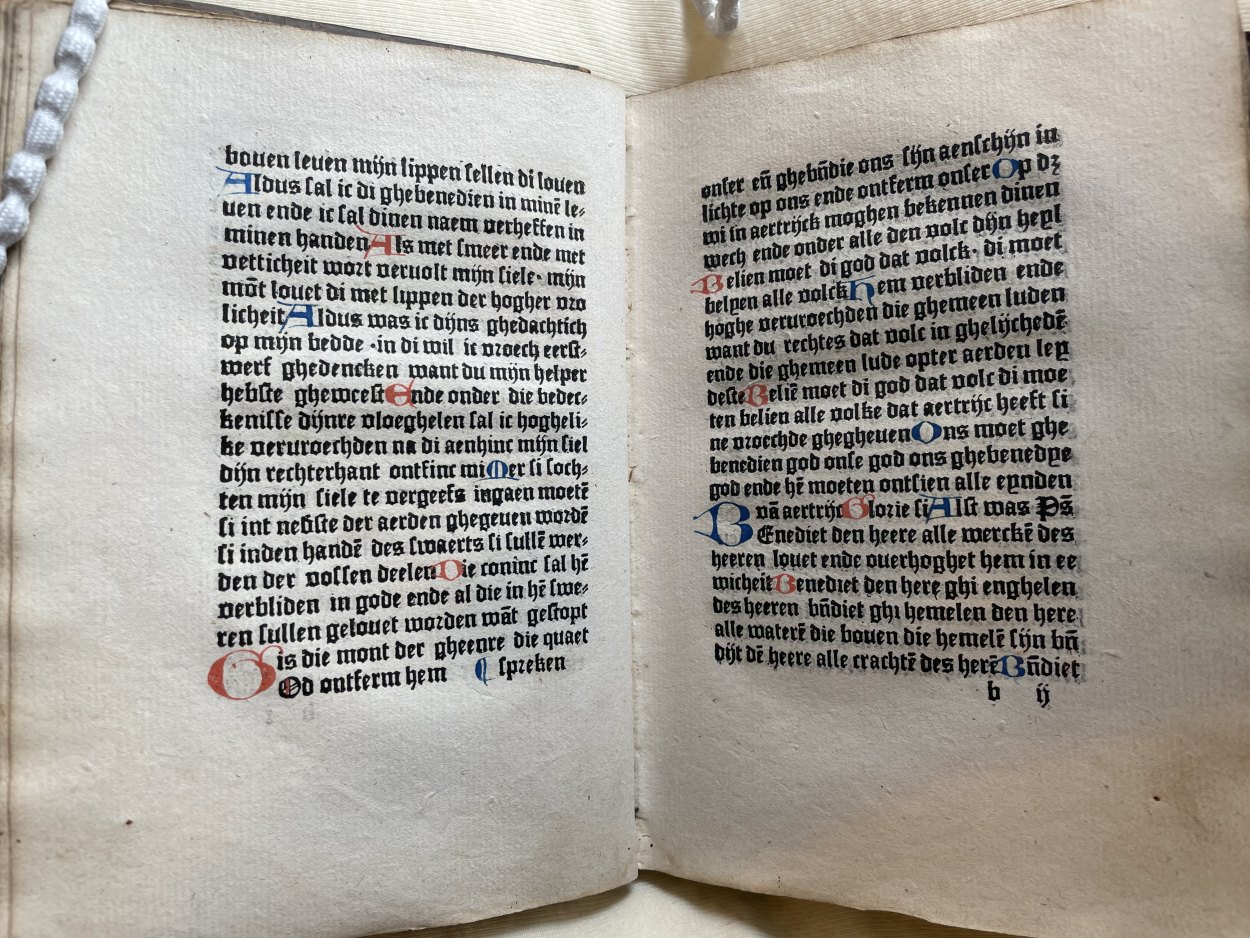 bouen leuen mijn lippen sellen di louen
Aldus sal ic di ghebenedien in minē le⸗
uen ende ic sal dinen naem verheffen in
minen handen Als met smeer ende met
vetticheit wort veruolt mijn siele · mijn
mōt louet di met lippen der hogher vro
licheit Aldus was ic dijns ghedachtich
op mijn bedde · in di wil ic vroech eerst⸗
werf ghedencken want du mijn helper
hebste gheweest Ende onder die bedec⸗
kenisse dijnre vloeghelen sal ic hogheli⸗
ke veruroechden na di aenhinc mijn siel
dijn rechterhant ontfinc mi Mer si soch⸗
ten mijn siele te vergeefs ingaen moetē
si int nehste der aerden ghegeuen wordē
si inden handē des swaerts si sullē wer⸗
den der vossen deelen Die coninc sal hē
verbliden in gode ende al die in hē swe⸗
ren sullen gelouet worden wāt gestopt
G is die mont der gheenre die quaet
Od ontferm hem ⸿ spreken
onser eñ ghebñdie ons sijn aenschijn in
lichte op ons ende ontferm onser Op dꝫ
wi in aertrijck moghen bekennen dinen
wech ende onder alle den volc dijn heyl
Belien moet di god dat volck · di moet
belyen alle volck Hem verbliden ende
hoghe veruroechden die ghemeen luden
want du rechtes dat volc in ghelijchedē
ende die ghemeen lude opter aerden ley
deste Beliē moet di god dat volc di moe
ten belien alle volke dat aertrijc heeft si
ne vroechde ghegheuen Ons moet ghe
benedien god onse god ons ghebenedye
god ende hē moeten ontsien alle eynden
B vā aertrijc Glorie si Alst was Ps̄
Enediet den heere alle werckē des
heeren louet ende ouerhoghet hem in ee
wicheit Benediet den here ghi enghelen
des heeren bñdiet ghi hemelen den here
alle waterē die bouen die hemelē sijn bñ
dijt dē heere alle crachtē des herē Bñdiet
b ij